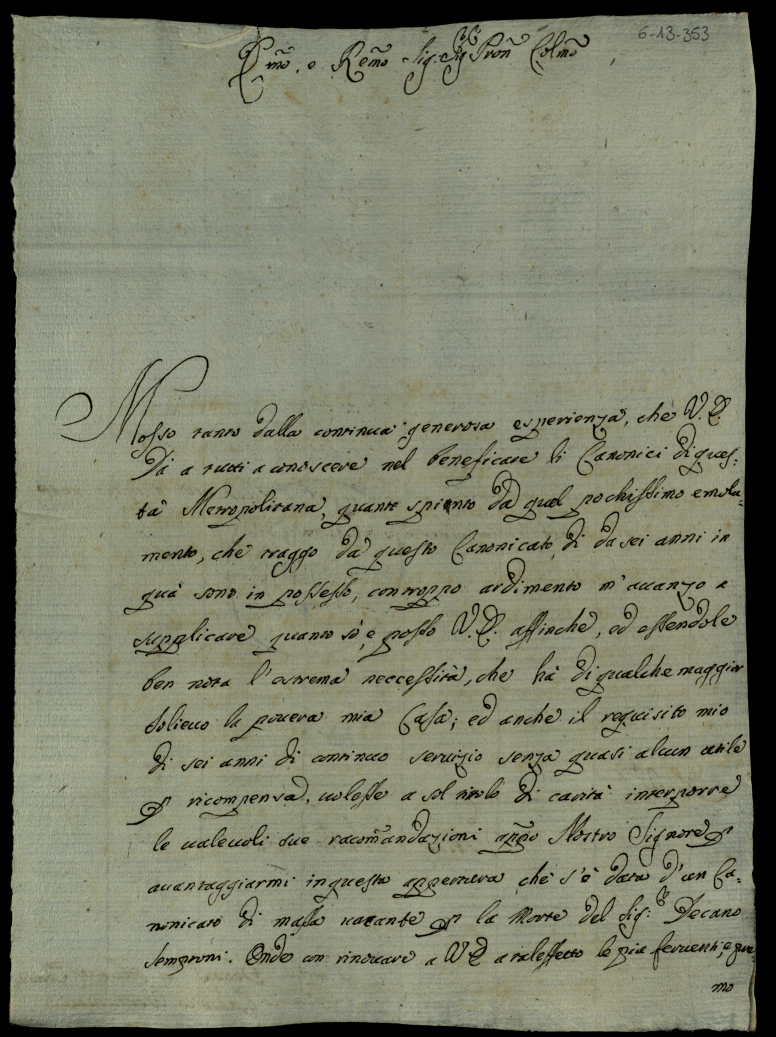 6-13-353
Emo, e Remo Sig: Sig Pron Colmo
Mosso tanto dalla continua generosa esperienza, che V. E.
dà a tutti a conoscere nel beneficare li Canonici di ques-
ta Metropolitana, quanto spinto da quel pochissimo emolu=
mento, che traggo da questo Canonicato, di da sei anni in
quà sono in possesso, con troppo ardimento m'avanzo a
supplicare quanto sò, e posso V. E. affinche, ed essendole
ben nota l'estrema neccessità, che hà di qualche maggior
solievo la povera mia Casa; ed anche il requisito mio
di sei anni di continuo servizio senza quasi alcun utile
p ricompensa, volesse a sol titolo di carità interporre
le valevoli sue racomandazioni appo Nostro Signore p
avantaggiarmi in questa appertura che s'è data d'un Ca-
nonicato di massa vacante p la Morte del Sig: Decano
Semproni. Onde con rinovare a V E a tal effetto le più ferventi, e pre
mo